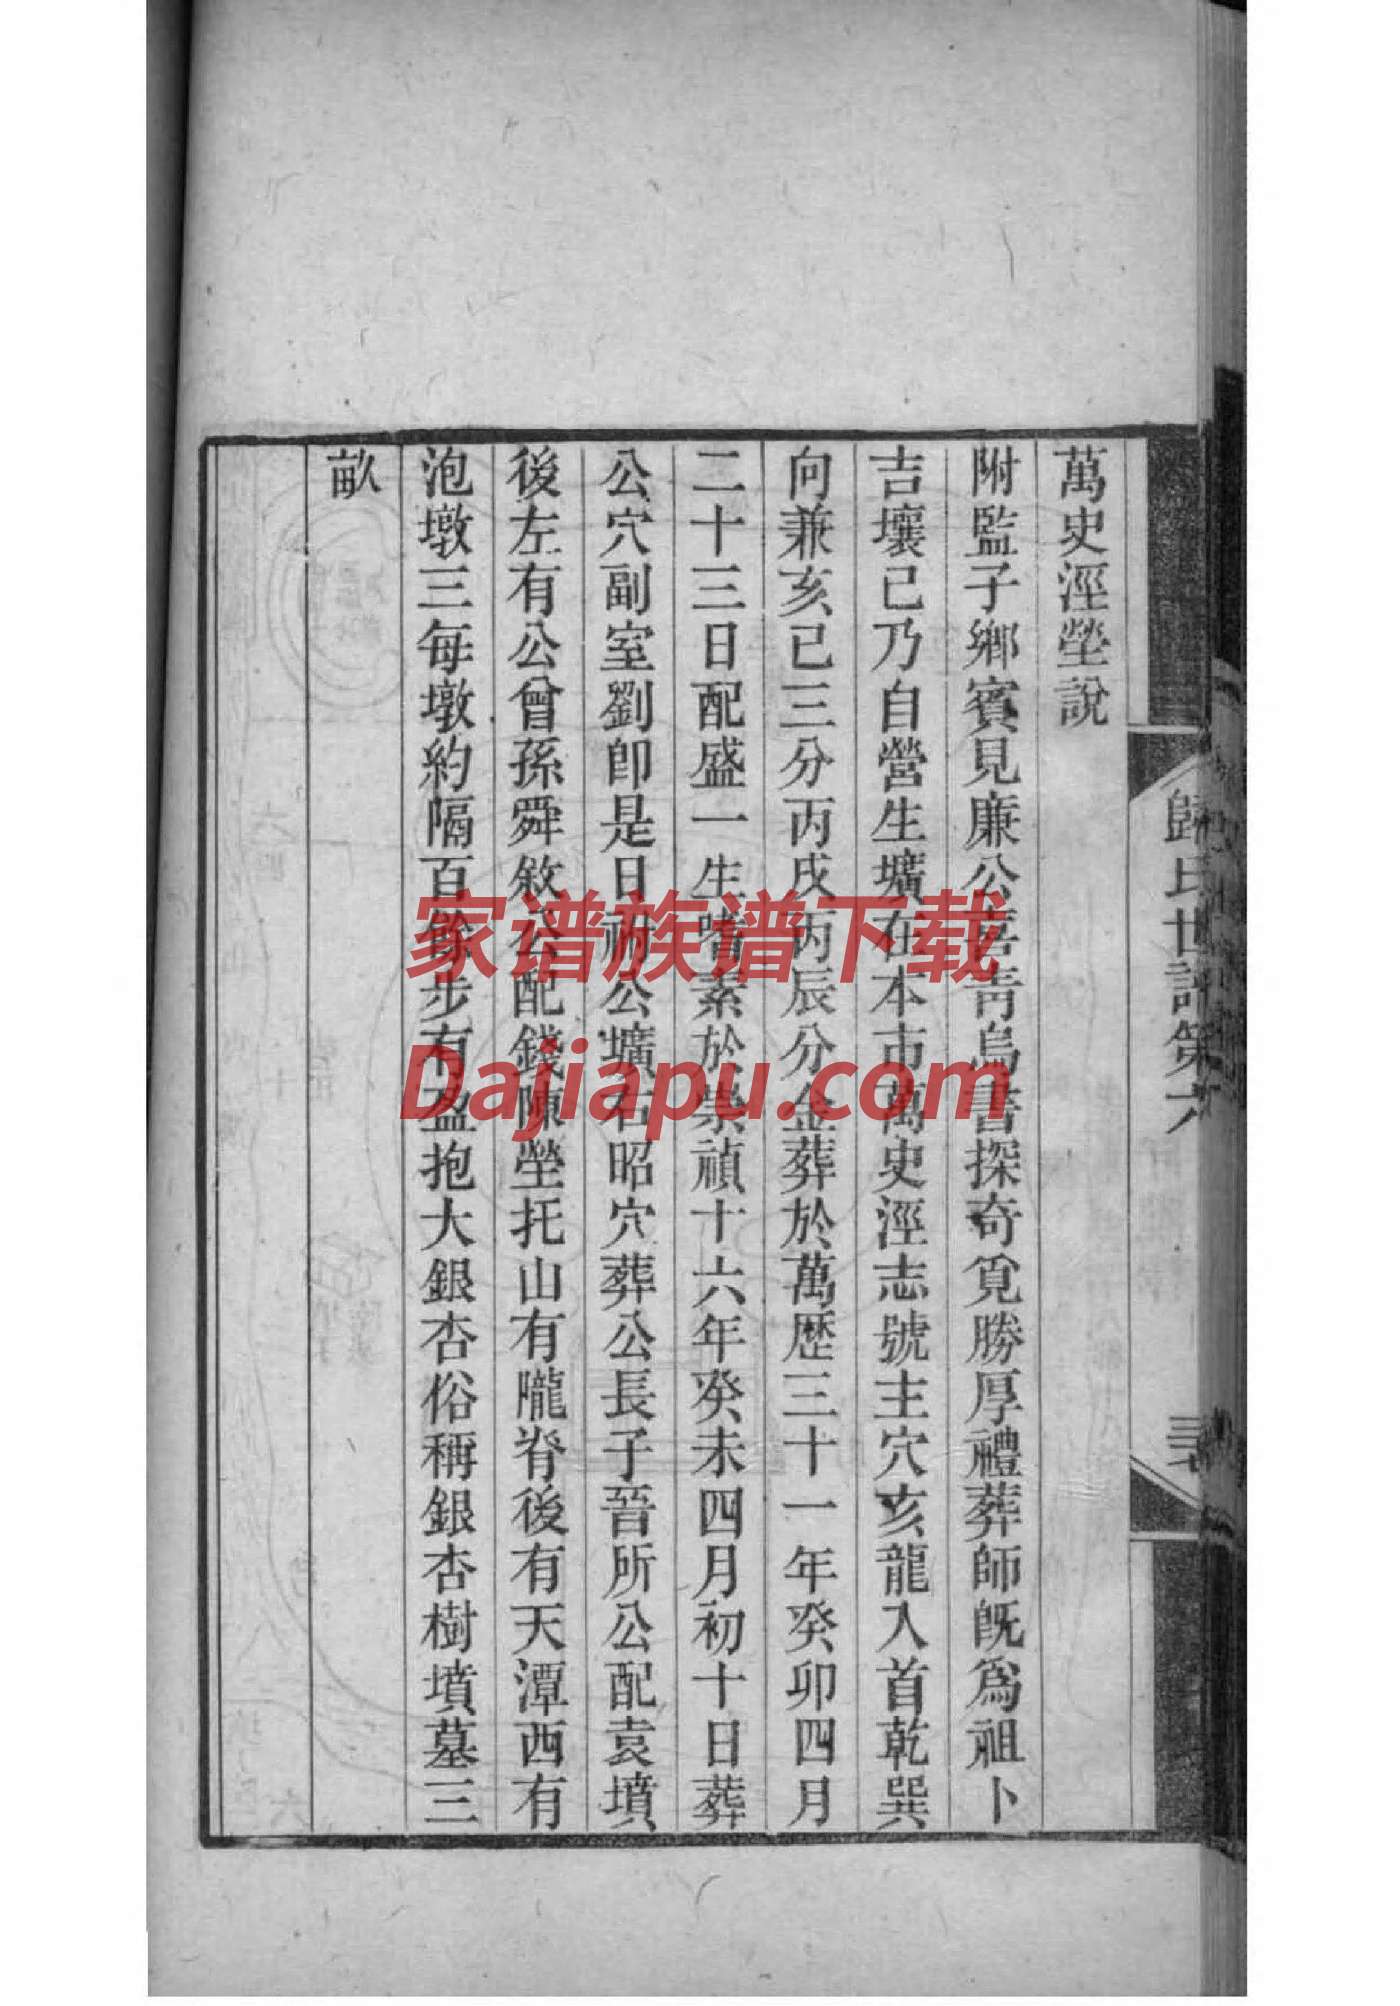 萬史涇塋說
附監子鄉賓見廉公喜青烏書探奇覓勝厚禮葬師旣爲祖卜
吉壤已乃自營生壙在本市萬史涇志號主穴亥龍入首乾巽
向兼亥已三分丙戌丙辰分金葬於萬歴三十一年癸卯四月
二十三日配盛一生嗜素於崇禎十六年癸未四月初十日葬
公穴副室劉卽是日祔公壙右昭穴葬公長子晉所公配袁墳
後左有公曾孫舜敘公配錢陳塋托山有隴脊後有天潭西有
泡墩三每墩約隔百餘步有盈抱大銀杏俗稱銀杏樹墳墓三
畝
歸氏世譜第六
家谱族谱下载
Dajiapu.com